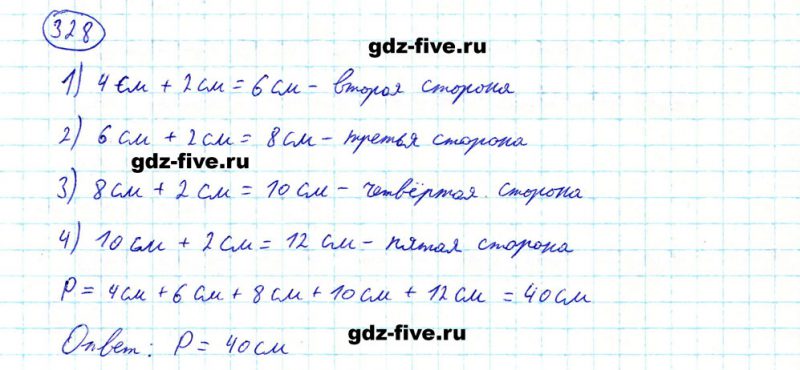 328
gdz-five.ru
1) 4 см + 2 см = 6 см – вторая сторона
2) 6 см + 2 см = 8 см – третья сторона
gdz-five.ru
3) 8 см + 2 см = 10 см – четвёртая сторона
4) 10 см + 2 см = 12 см – пятая сторона
P = 4 см + 6 см + 8 см + 10 см + 12 см = 40 см
gdz-five.ru
Ответ: P = 40 см